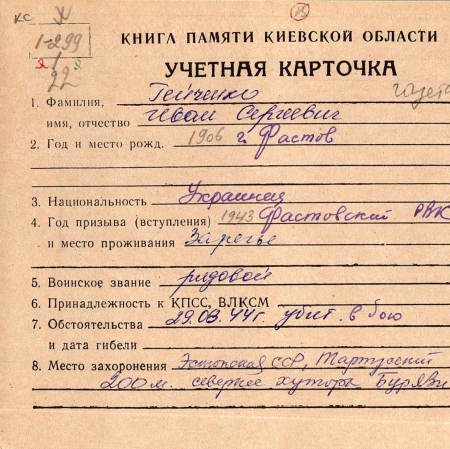 КС
1-299
Я/Я
22
КНИГА ПАМЯТИ КИЕВСКОЙ ОБЛАСТИ
УЧЕТНАЯ КАРТОЧКА
1. Фамилия, Гейченко
имя, отчество Иван Сергеевич
2. Год и место рожд. 1906 г. Фастов
3. Национальность Украинец
4. Год призыва (вступления) 1943 Фастовский РВК
и место проживания Заречье
5. Воинское звание рядовой
6. Принадлежность к КПСС, ВЛКСМ
7. Обстоятельства 29.08.44г. убит в бою
и дата гибели
8. Место захоронения Эстонская ССР, Тартусский
200 м. севернее хутора